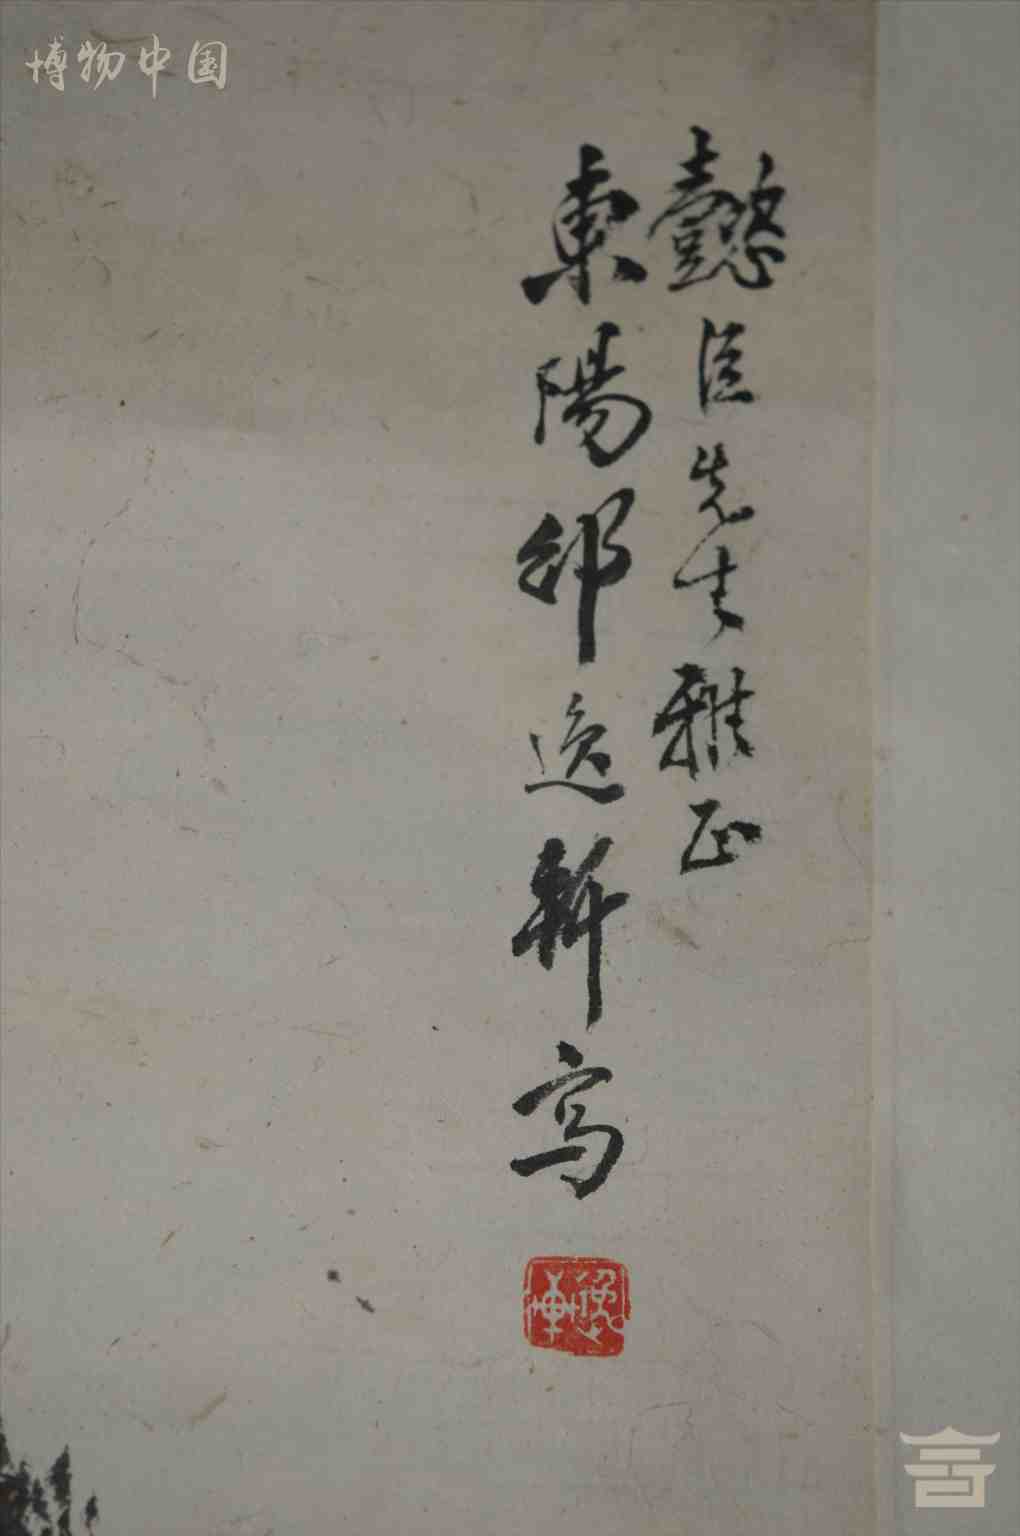 博物中国
懿臣先生雅正
東陽邵逸軒写
逸軒